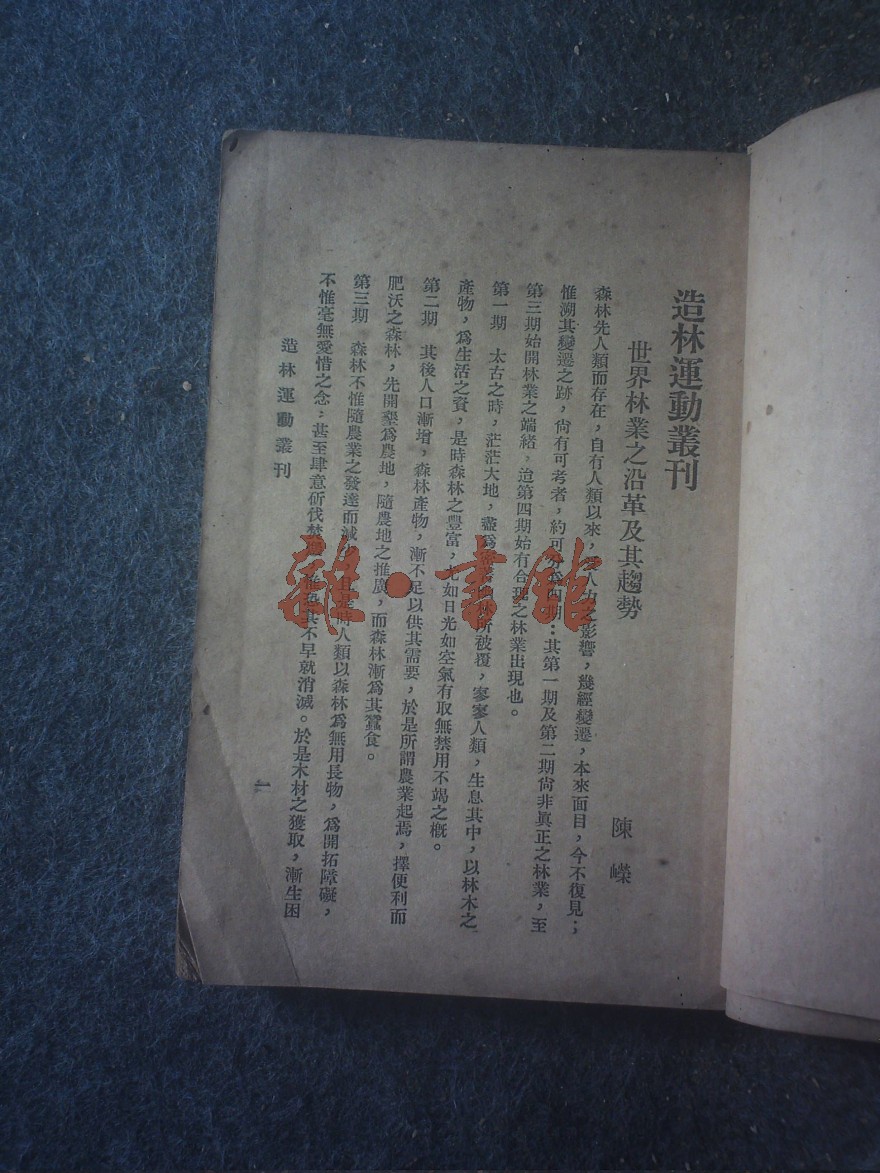 造林運動叢刊
世界林業之沿革及其趨勢
陳嶸
森林先人類而存在，自有人類以來，人力之影響，幾經變遷，本來面目，今不復見；
惟溯其變遷之跡，尙有可考者，約可分爲四期：其第一期及第二期尙非眞正之林業，至
第三期始開林業之端緒，迨第四期始有合理之林業出現也。
第一期　太古之時，茫茫大地，盡爲所被覆，寥寥人類，生息其中，以林木之
產物，爲生活之資，是時森林之豐富，尤如日光如空氣有取無禁用不竭之槪。
第二期　其後人口漸增，森林產物，漸不足以供其需要，於是所謂農業起焉，擇便利而
肥沃之森林，先開墾爲農地，隨農地之推廣，而森林漸爲其蠶食。
第三期　森林不惟隨農業之發達而減，且是時人類以森林爲無用長物，爲開拓障礙，
不惟毫無愛惜之念，甚至肆意斫伐焚，惟恐其不早就消滅。於是木材之獲取，漸生困
造林運動叢刊
一
雜·書館